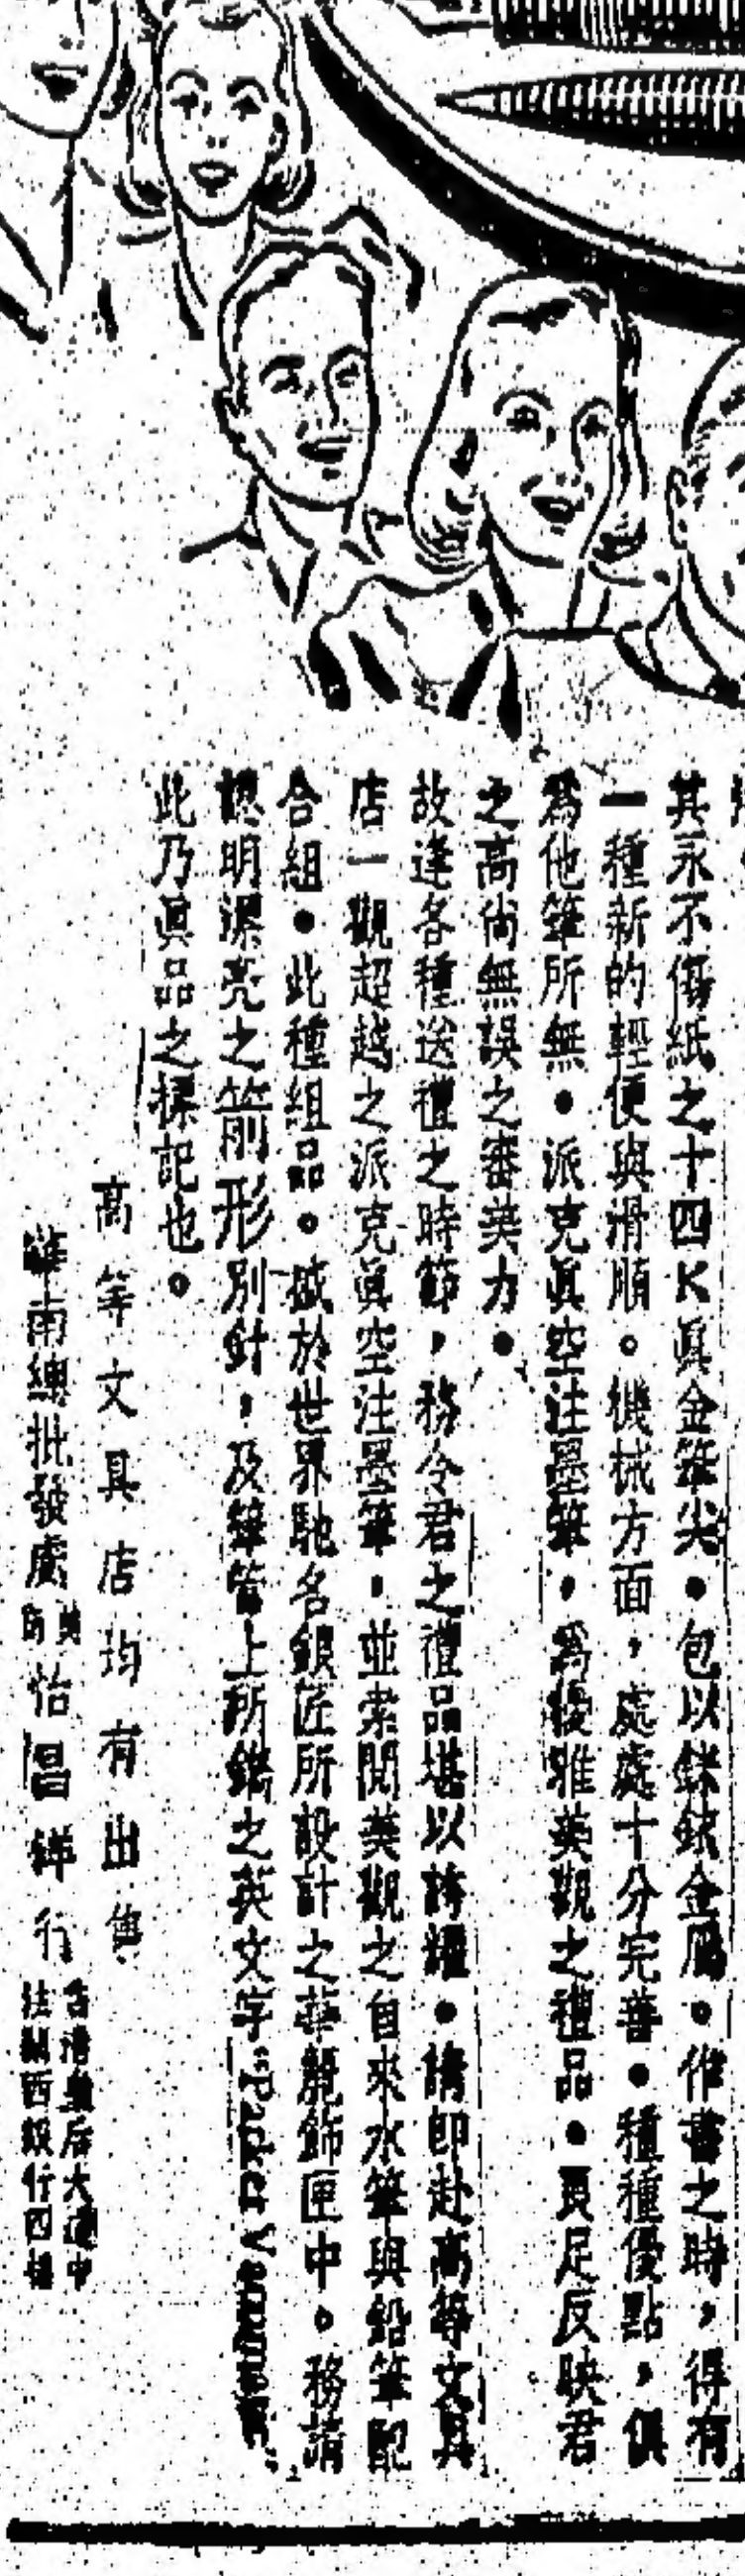 其永不傷紙之十四K眞金筆尖・包以銥金屬・作書之時，得有
一種新的輕便與滑順。機械方面，處處十分完善・種種優點，俱
爲他筆所無・派克眞空注墨筆，爲優雅美觀之禮品・更足反映君
之高尚無誤之審美力・
故逢各種送禮之時節，務令君之禮品堪以誇耀・請即赴高等文具
店一觀超越之派克眞空注墨筆，並索閱美觀之自來水筆與鉛筆配
合組・此種組品。盛於世界馳名銀匠所設計之華麗飾匣中。務請
認明漂亮之箭形別針，及筆管上所鐫之英文字
此乃眞品之標記也。
高等文具店均有出售
華南總批發處 英商 怡昌洋行 香港皇后大道中 法蘭西銀行四樓